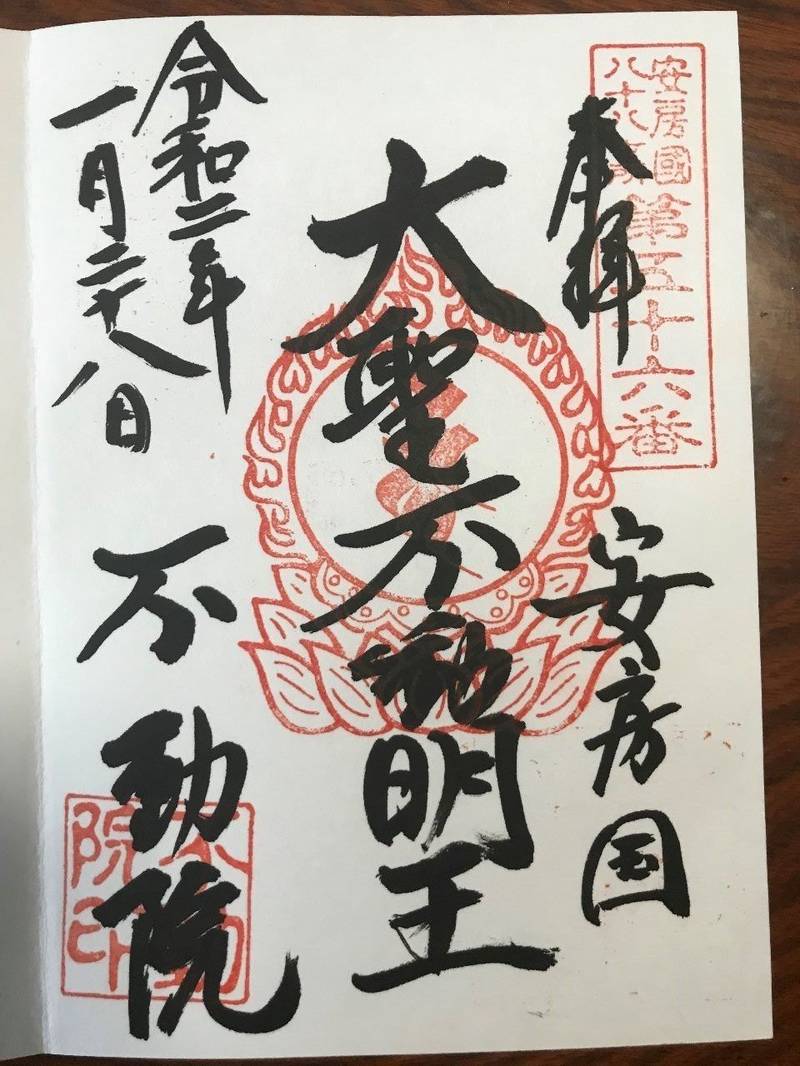 安房國
八十八ヶ所
第五十六番
奉拝
安房国
大聖不動明王
令和二年
一月二十八日
不動院
不動
院印